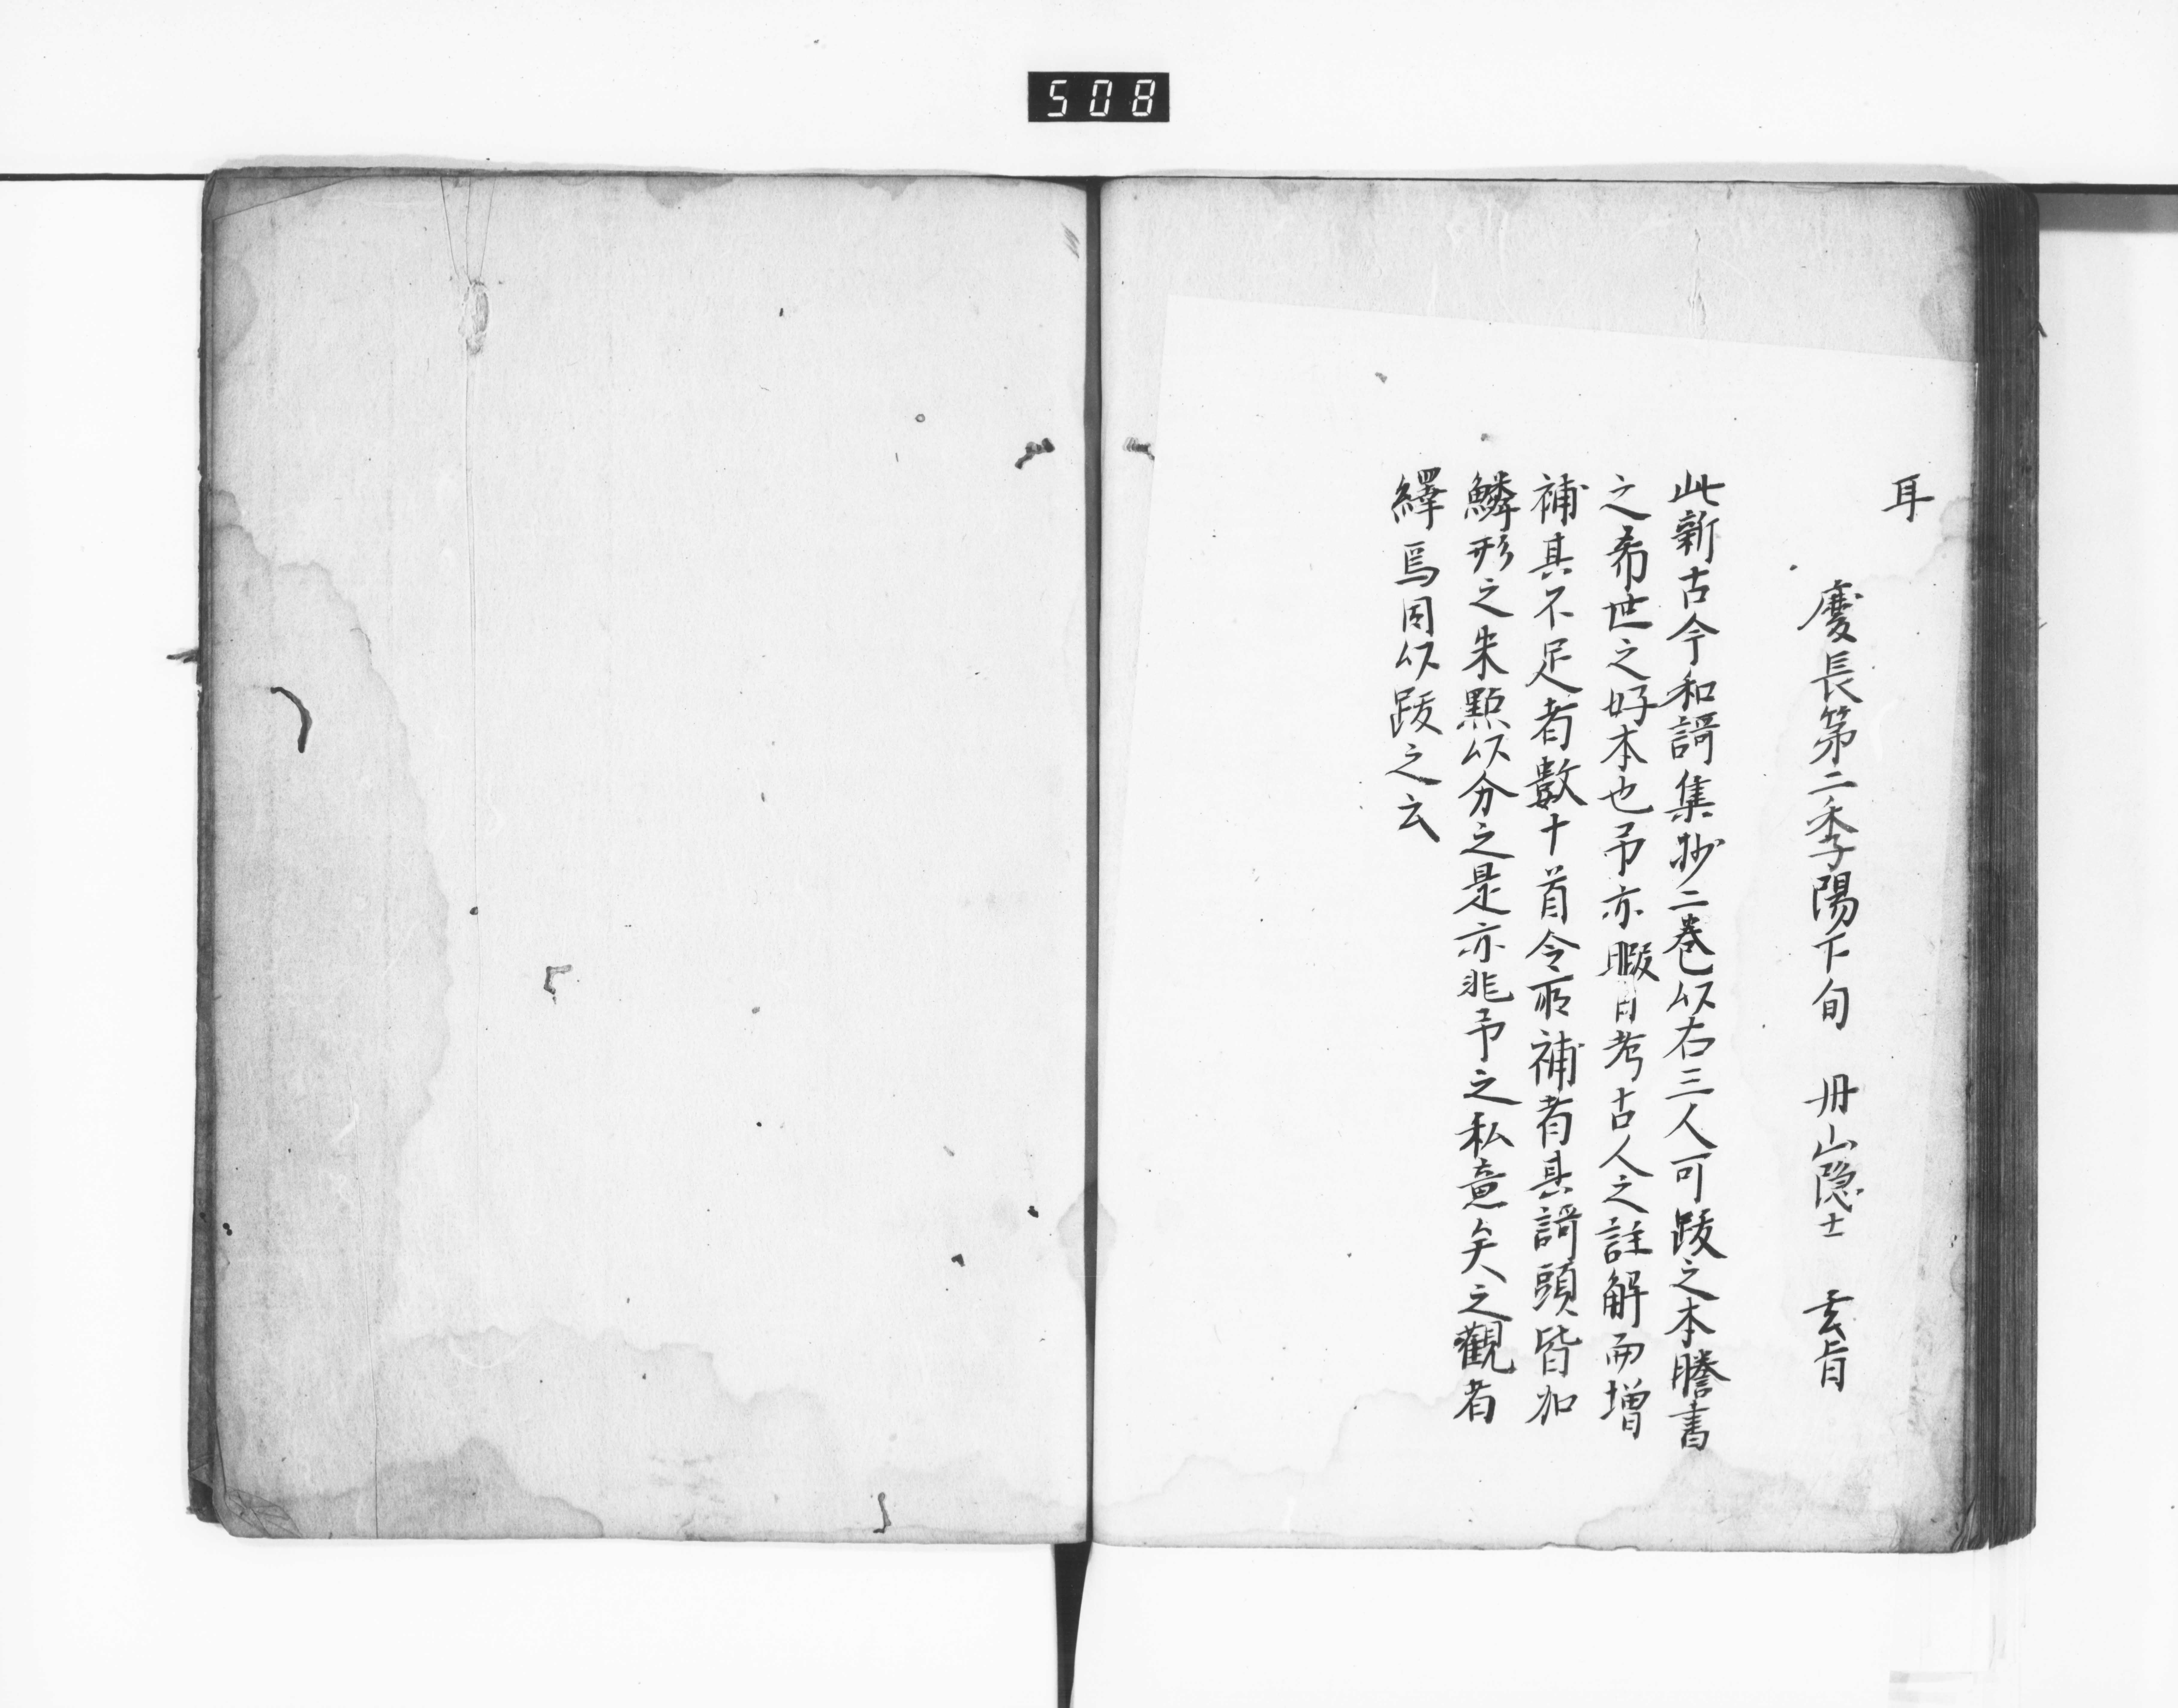 508
耳
慶長第二季陽下旬　丹山隠士　玄旨
此新古今和謌集抄二巻以右三人可跋之本謄書
之希世之好本也予亦暇日考古人之註解而増
補其不足者數十首令所補者其謌頭皆加
鱗形之朱點以分之是亦非予之私意矣之觀者
繹焉因以跋之云